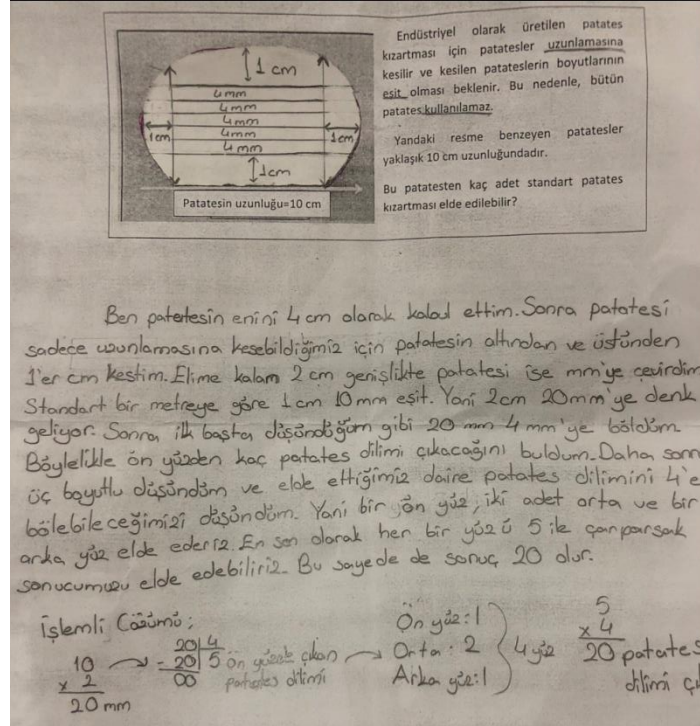 Endüstriyel olarak üretilen patates
kızartması için patatesler uzunlamasına
kesilir ve kesilen patateslerin boyutlarının
eşit olması beklenir. Bu nedenle, bütün
patates kullanılamaz.
Yandaki resme benzeyen patatesler
yaklaşık 10 cm uzunluğundadır.
Bu patatesten kaç adet standart patates
kızartması elde edilebilir?
1 cm
4mm
4mm
4mm
4mm
4mm
1cm
1cm
1cm
Patatesin uzunluğu=10 cm
Ben patatesin enini 4 cm olarak kabul ettim. Sonra patatesi
sadece uzunlamasına kesebildiğimiz için patatesin altından ve üstünden
1'er cm kestim. Elime kalam 2 cm genişlikte patatesi ise mm'ye çevirdim
Standart bir metreye göre 1 cm 10 mm eşit. Yani 2cm 20mm'ye denk
geliyor. Sonra ilk başta düşündüğüm gibi 20 mm 4 mm'ye böldüm.
Böylelikle ön yüzden kaç patates dilimi çıkacağını buldum. Daha sonr
üç boyutlu düşündüm ve elde ettiğimiz daire patates dilimini 4'e
bölebileceğimizi düşündüm. Yani bir ön yüz, iki adet orta ve bir
arka yüz elde ederiz. En son olarak her bir yüzü 5 ile çarparsak
sonucumuzu elde edebiliriz. Bu sayede de sonuç 20 olur.
İşlemli Çözümü:
10
x 2
20 mm
20 4
- 20 5
00
ön yüzde çıkan
patates dilimi
Ön yüz: 1
Orta: 2
Arka yüz: 1
4 yüz
5
x 4
20 patates
dilimi çı